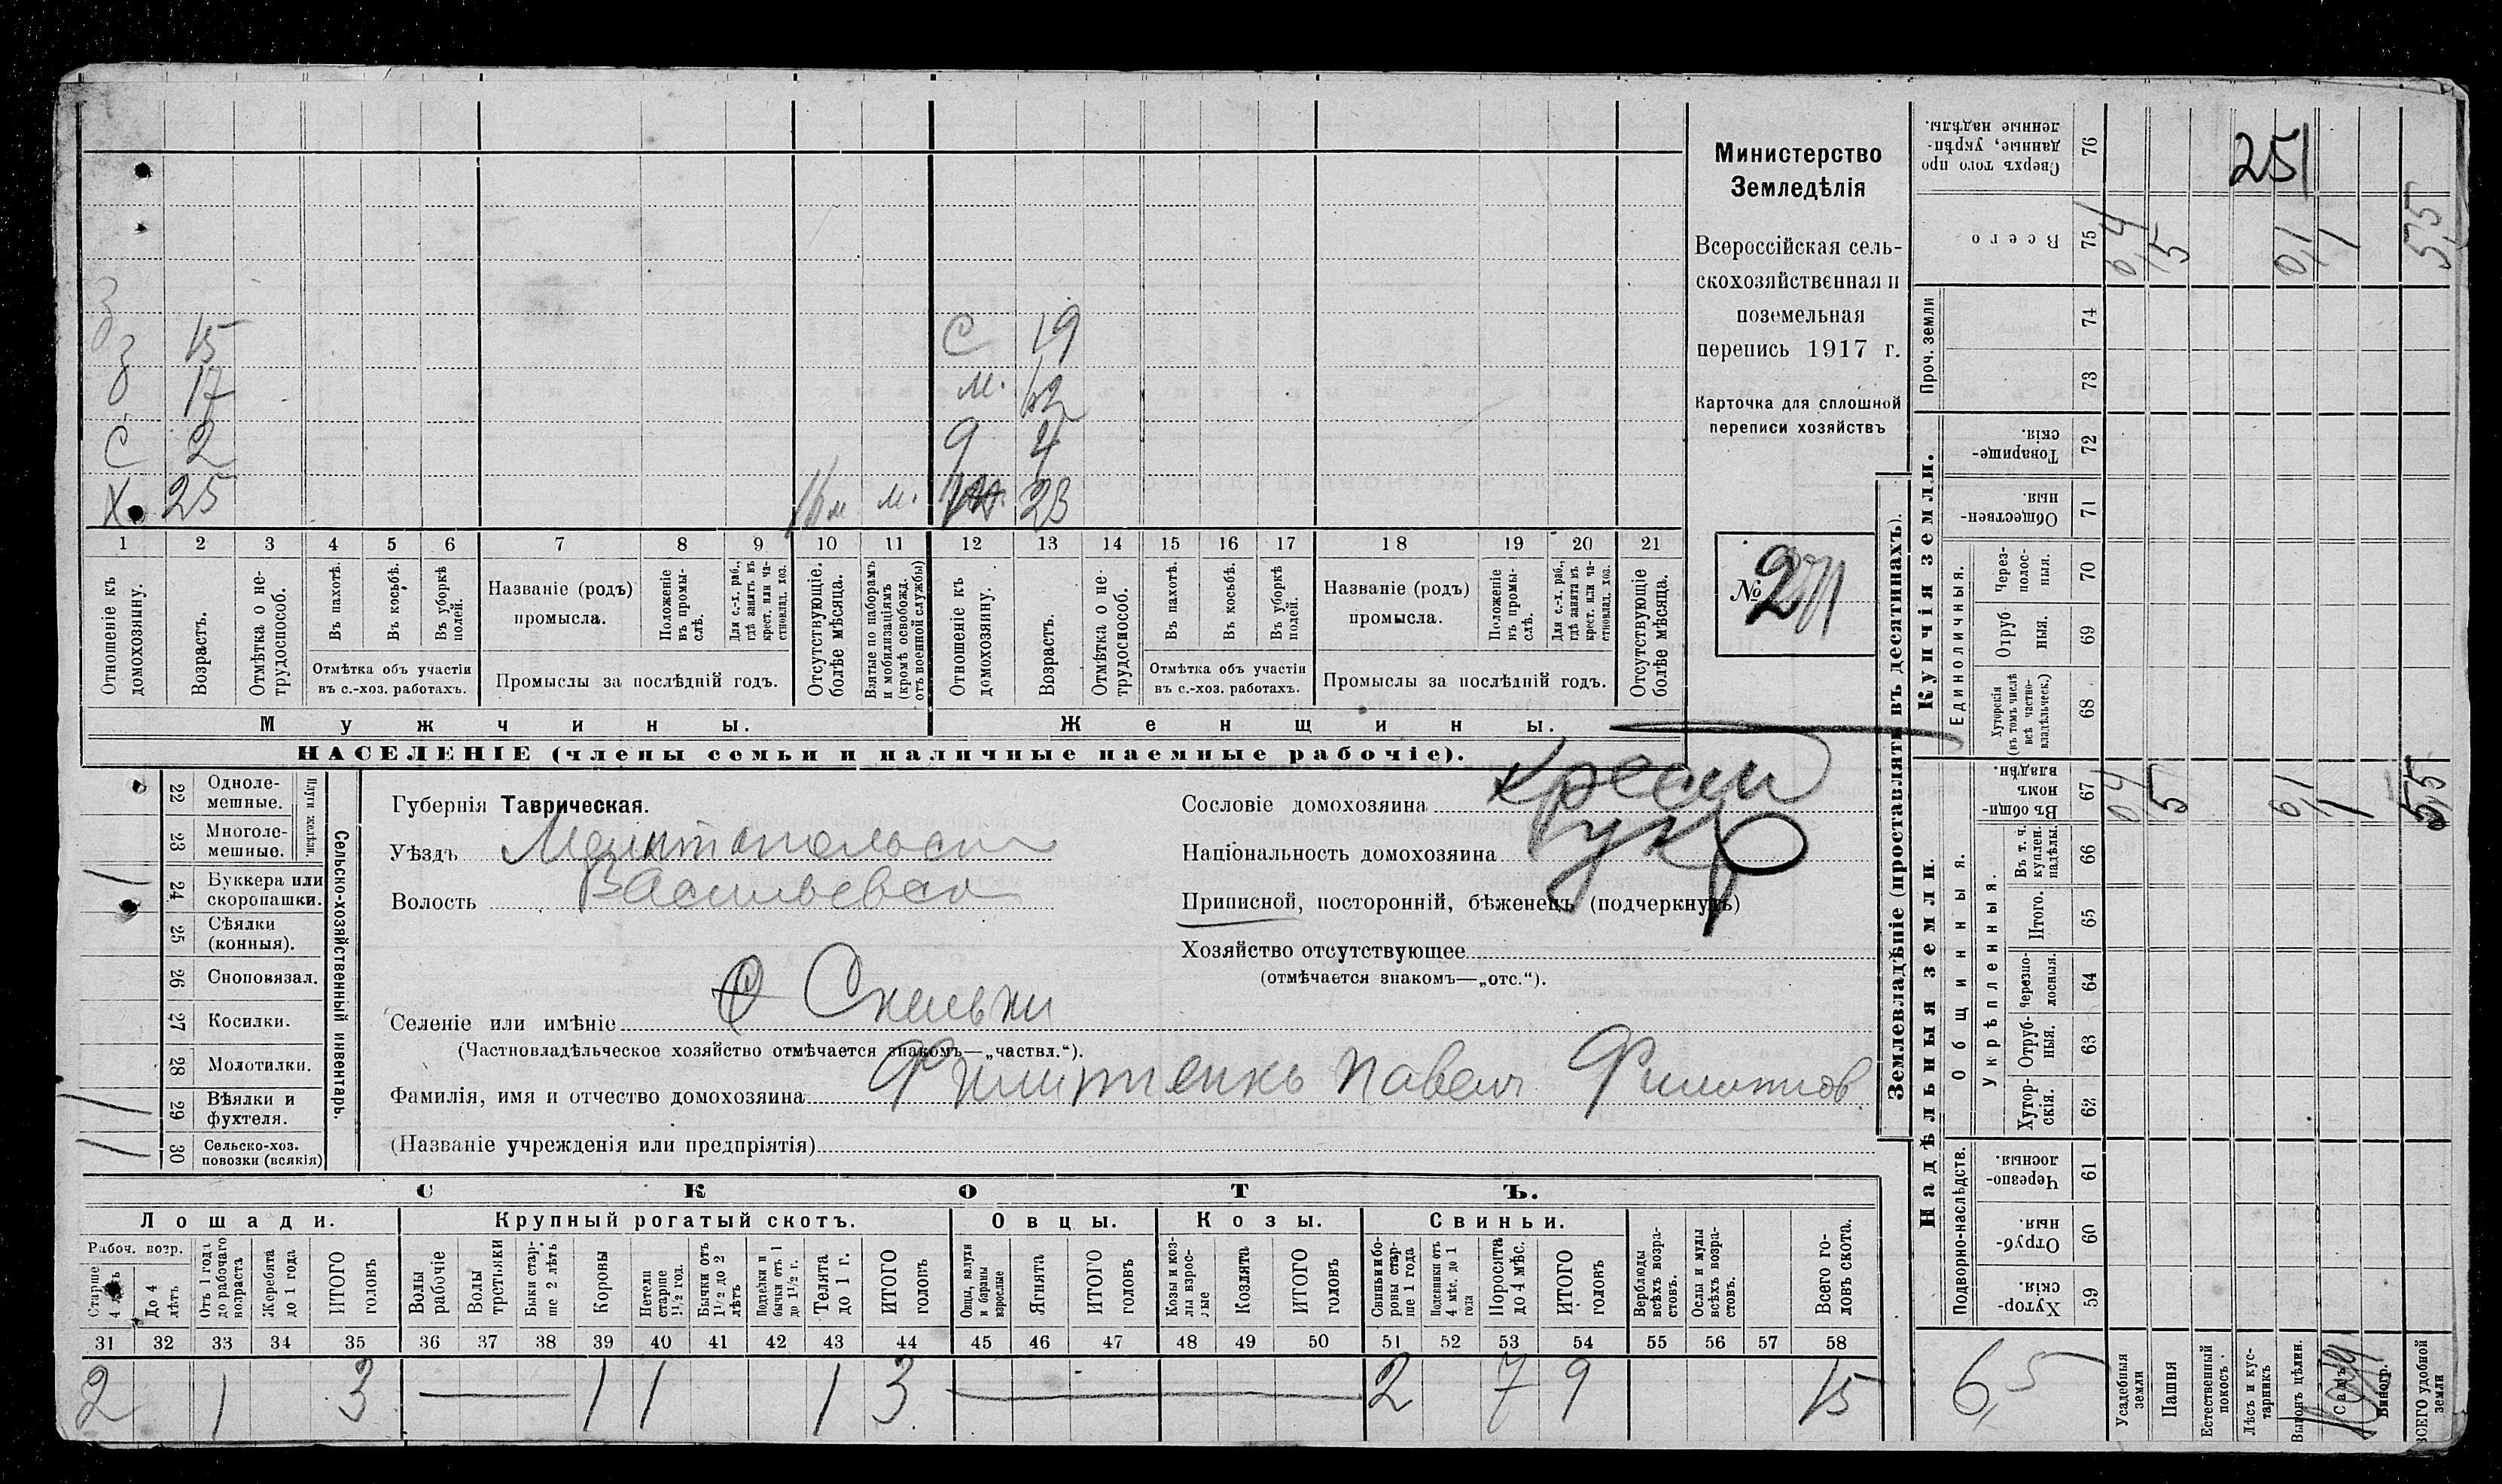 З 15
З 17
С 2
Х. 25 м.
С 19
м. 
9 4
23
1 2 3 4 5 6 7 8 9 10 11 12 13 14 15 16 17 18 19 20 21
Отношеніе къ домохозяину.
Возрастъ.
Отмѣтка о нетрудоспособ.
Въ пахотѣ.
Въ косьбѣ.
Въ уборкѣ полей.
Отмѣтка объ участіи
въ с.-хоз. работахъ.
Названіе (родъ)
промысла.
Положеніе въ промыслѣ.
Для с.-х. раб., гдѣ занятъ въ крест. или частновлад. хоз.
Промыслы за послѣдній годъ.
Отсутствующіе болѣе мѣсяца.
Взятые по наборамъ и мобилизаціямъ (кромѣ освобожд. отъ военной службы)
Отношеніе къ домохозяину.
Возрастъ.
Отмѣтка о нетрудоспособ.
Въ пахотѣ.
Въ косьбѣ.
Въ уборкѣ полей.
Отмѣтка объ участіи
въ с.-хоз. работахъ.
Названіе (родъ)
промысла.
Положеніе въ промыслѣ.
Для с.-х. раб., гдѣ занята въ крест. или частновлад. хоз.
Промыслы за послѣдній годъ.
Отсутствующіе болѣе мѣсяца.
Мужчины.
Женщины.
НАСЕЛЕНІЕ (члены семьи и наличные наемные рабочіе).
Министерство
Земледѣлія
Всероссійская сель-
скохозяйственная и
поземельная
перепись 1917 г.
Карточка для сплошной
переписи хозяйствъ
№
Сельско-хозяйственный инвентарь.
Плуги желѣзн.
22 Однолемешные.
23 Многолемешные.
24 Буккера или скоропашки.
25 Сѣялки (конныя).
26 Сноповязал.
27 Косилки.
28 Молотилки.
29 Вѣялки и фухтеля.
30 Сельско-хоз. повозки (всякія)
Губернія Таврическая.
Уѣздъ Мелитопольск
Волость Васильевск
Селеніе или имѣніе С Скельки
(Частновладѣльческое хозяйство отмѣчается знакомъ—„частвл.“).
Фамилія, имя и отчество домохозяина Филипенко Павелъ Филиппов.
(Названіе учрежденія или предпріятія)
Сословіе домохозяина крест
Національность домохозяина укр
Приписной, посторонній, бѣженецъ (подчеркнуть)
Хозяйство отсутствующее
(отмѣчается знакомъ—„отс.“).
СКОТЪ.
Лошади.
Крупный рогатый скотъ.
Овцы.
Козы.
Свиньи.
Рабоч. возр.
Старше 4 лѣтъ
До 4 лѣтъ
Отъ 1 года до рабочаго возраста
Жеребята до 1 года
ИТОГО головъ
Волы рабочіе
Волы третьяки
Быки старше 2 лѣтъ
Коровы
Нетели старше 1½ год.
Бычки отъ 1½ до 2 лѣтъ
Подтелки и бычки отъ 1 до 1½ г.
Телята до 1 г.
ИТОГО головъ
Овцы, валухи и бараны взрослые
Ягнята
ИТОГО головъ
Козы и козлы взрослые
Козлята
ИТОГО головъ
Свиньи и бороны старше 1 года
Подсвинки отъ 4 мѣс. до 1 года
Поросята до 4 мѣс.
ИТОГО головъ
Верблюды всѣхъ возрастовъ.
Ослы и мулы всѣхъ возрастовъ.
Всего головъ скота.
31 32 33 34 35 36 37 38 39 40 41 42 43 44 45 46 47 48 49 50 51 52 53 54 55 56 57 58
2 1 3 — 1 1 1 3 — 2 7 9 15
Землевладѣніе (проставлять въ десятинахъ).
Купчія земли.
Надѣльныя земли.
Проч. земли
Единоличныя.
Общинныя.
Укрѣпленныя.
Подворно-наслѣдств.
Сверхъ того проданные, укрѣпленные надѣлы. 76 251
Всего 75 0,4 5 0,1 5,5
74
73
Товарищескія. 72
Общественныя. 71
Черезполосныя. 70
Отрубныя. 69
Хуторскія (въ томъ числѣ всѣ частновладѣльческ.) 68
Въ общинномъ владѣн. 67 0,4 5 0,1 5,5
Въ т. ч. куплен. надѣлы. 66
Итого. 65
Черезполосныя. 64
Отрубныя. 63
Хуторскія. 62
Черезполосныя. 61
Отрубныя. 60
Хуторскія. 59
6,5
Усадебныя земли
Пашня
Естественный покосъ.
Лѣсъ и кустарникъ
Выгонъ цѣлин.
Виногр.
ВСЕГО удобной земли